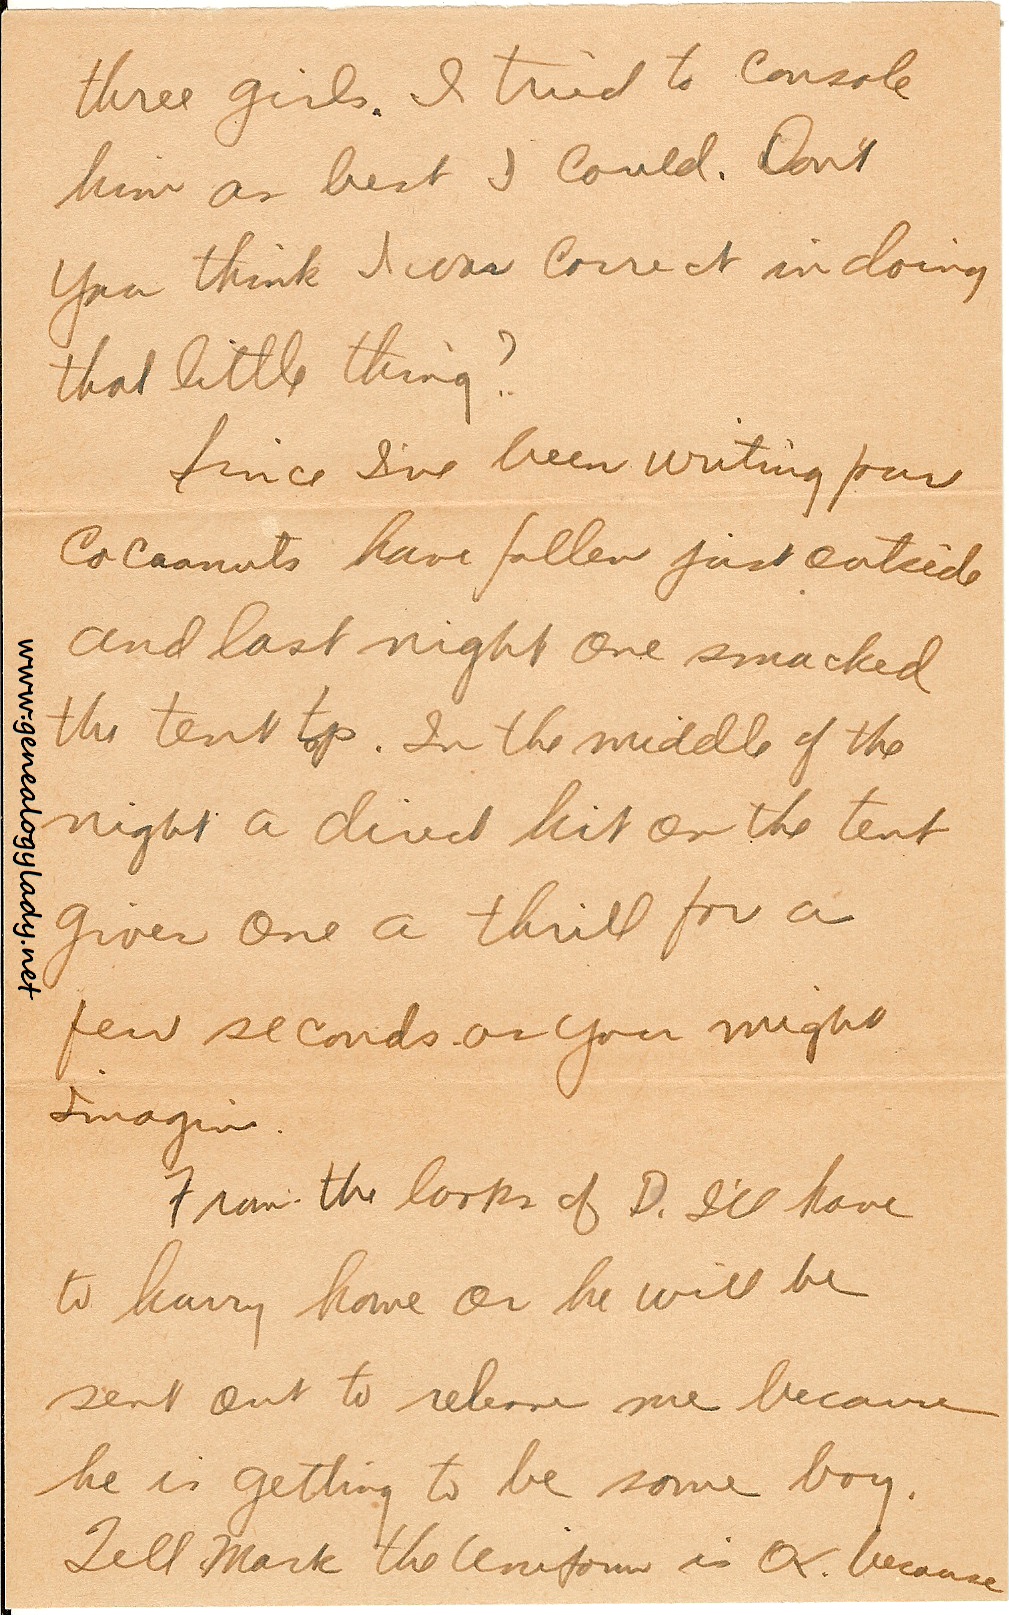 three girls. I tried to console
him as best I could. Don't
you think I was correct in doing
that little thing?
Since I've been writing four
Cocoanuts have fallen just outside
and last night one smacked
the tent top. In the middle of the
night a direct hit on the tent
gives one a thrill for a
few seconds as you might
imagin.
From the looks of D. I'll have
to hurry home or he will be
sent out to releave me because
he is getting to be some boy.
Tell Mark the Uniform is OK. because
www.genealogylady.net